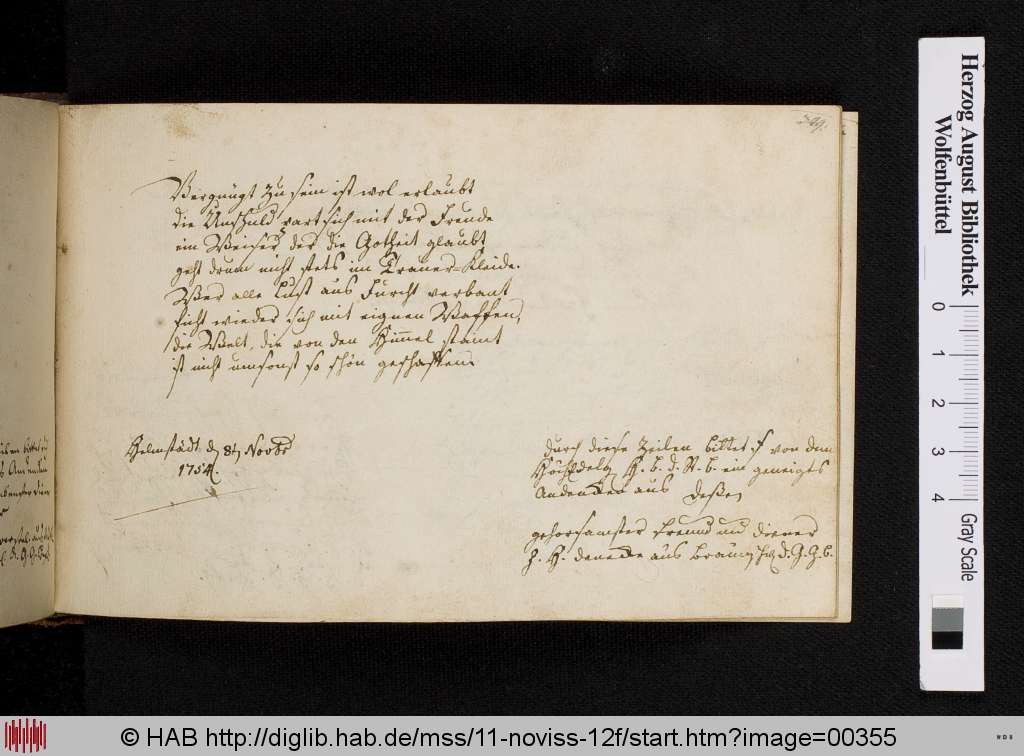 Vergnügt zu sein ist wol erlaubt
die Unschuld paart sich mit der Freude
ein Weiser der die Gotheit glaubt
geht drum nicht stets im Trauer-Kleide.
Wer alle Lust aus Furcht verbant
ficht wieder sich mit eignen Waffen,
die Welt, die von den Himel stamt
ist nicht umsonst so schön geschaffen
Helmstädt. d 8t Novbr
1754.
durch diese Zeilen bittet sich von dem
H. b. d. R. b. ein geneigtes
Andencken aus deßen
gehorsamster Freund und Diener
H. denecke aus Braunschw. d. G. G. b.
Herzog August Bibliothek
Wolfenbüttel
0 1 2 3 4
Gray Scale
© HAB http://diglib.hab.de/mss/11-noviss-12f/start.htm?image=00355